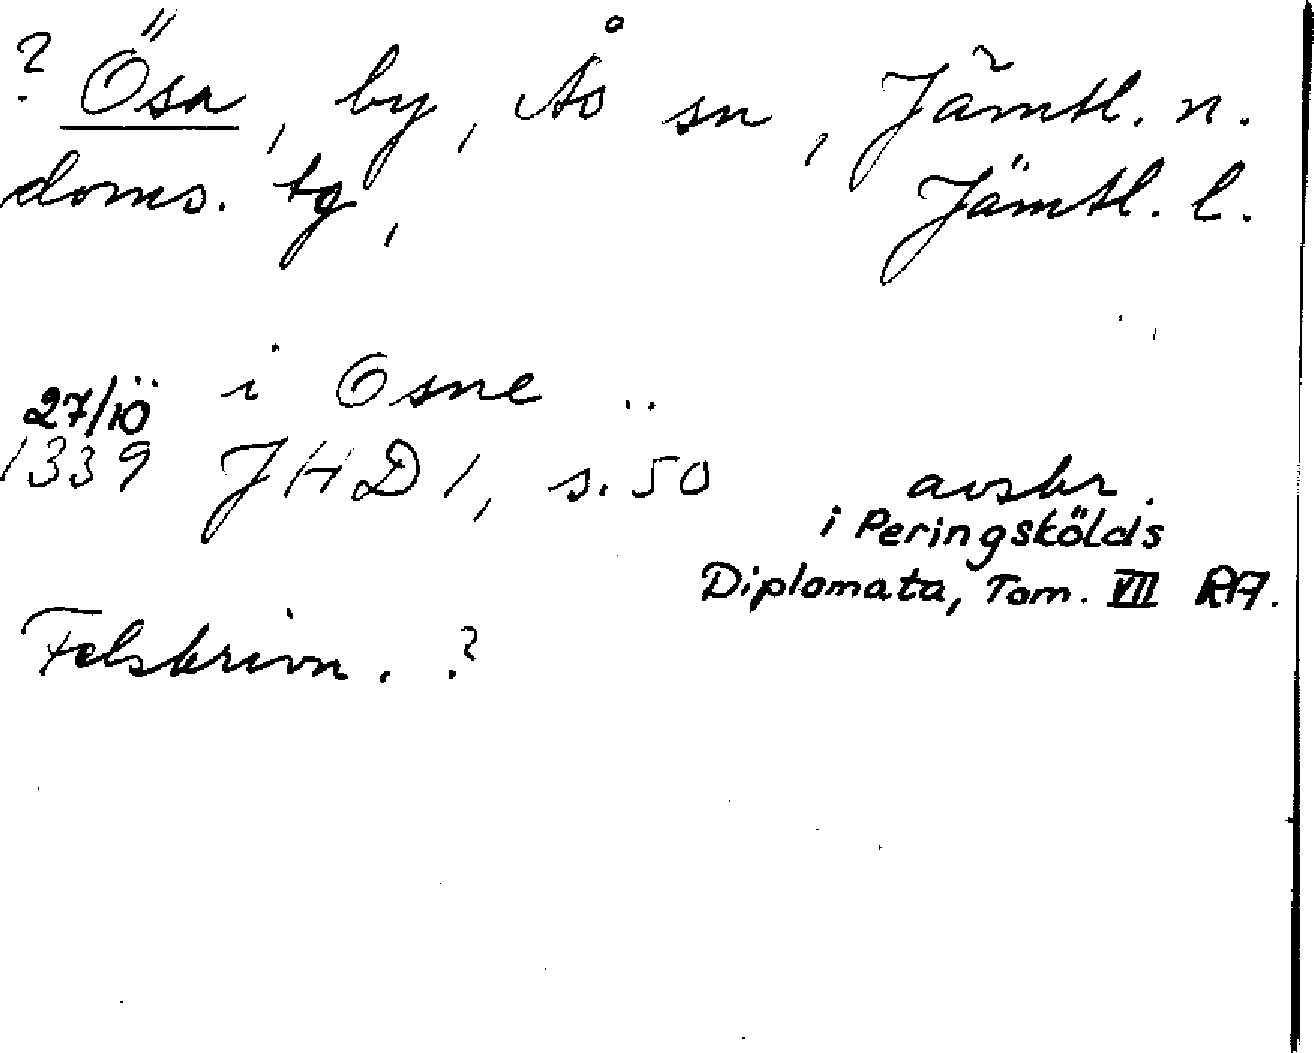 ? Ösa, by, Ås sn, Jämtl. n.
doms. tg, Jämtl. l.
27/10 i Osne ..
1339 JHD 1, s. 50 avskr.
i Peringskölds
Diplomata, Tom. VII RA.
Felskrivn. ?